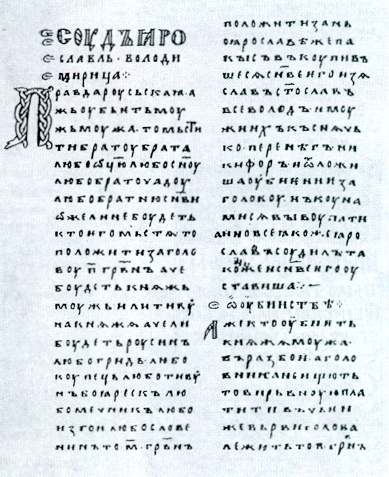 СОУДЪ ꙖРО
СЛАВЛЬ ВОЛОДИ
МИРИЦА :
Правда роусьскаꙗ. а
жь оубьѥть моу
жь моужа. то мьсти
ти братоу брата
любо ѿцю любо сн҃оу
любо братоучадоу
любо братню сн҃ви
ѡже ли не боудеть
кто ѥго мьстѧ то
положити за голо
воу п҃ грвн҃ъ аче
боудеть кнѧжь
моужь или тивоу
на кнѧжа аче ли
боудеть роусинъ
любо гридь. любо
коупець любо тивоу
нъ боꙗрескъ лю
бо мечникъ любо
изгои любо слове
нинъ то м҃ грвн҃ъ
положити за нь
по ꙗрославѣ же па
кы съвъкоупивъ
шесѧ сн҃ве ѥго изѧ
славъ ст҃ославъ
всеволодъ и моу
жи ихъ къснѧчь
ко. перенѣгъ ни
кифоръ и ѿложи
ша оубиѥниѥ за
головоу нъ коуна
ми сѧ выкоупати
а ино все ꙗкоже ꙗро
славъ соудилъ та
коже и сн҃ве ѥго оу
ставиша :
ѡ оубииствѣ :
Аже кто оубиѥть
кнѧжа моужа.
въ разбои а голо
вника не ищють
то вирьвноую пла
тити въ чьѥи
же вьрви голова
лежить то п҃ грвн҃ъ